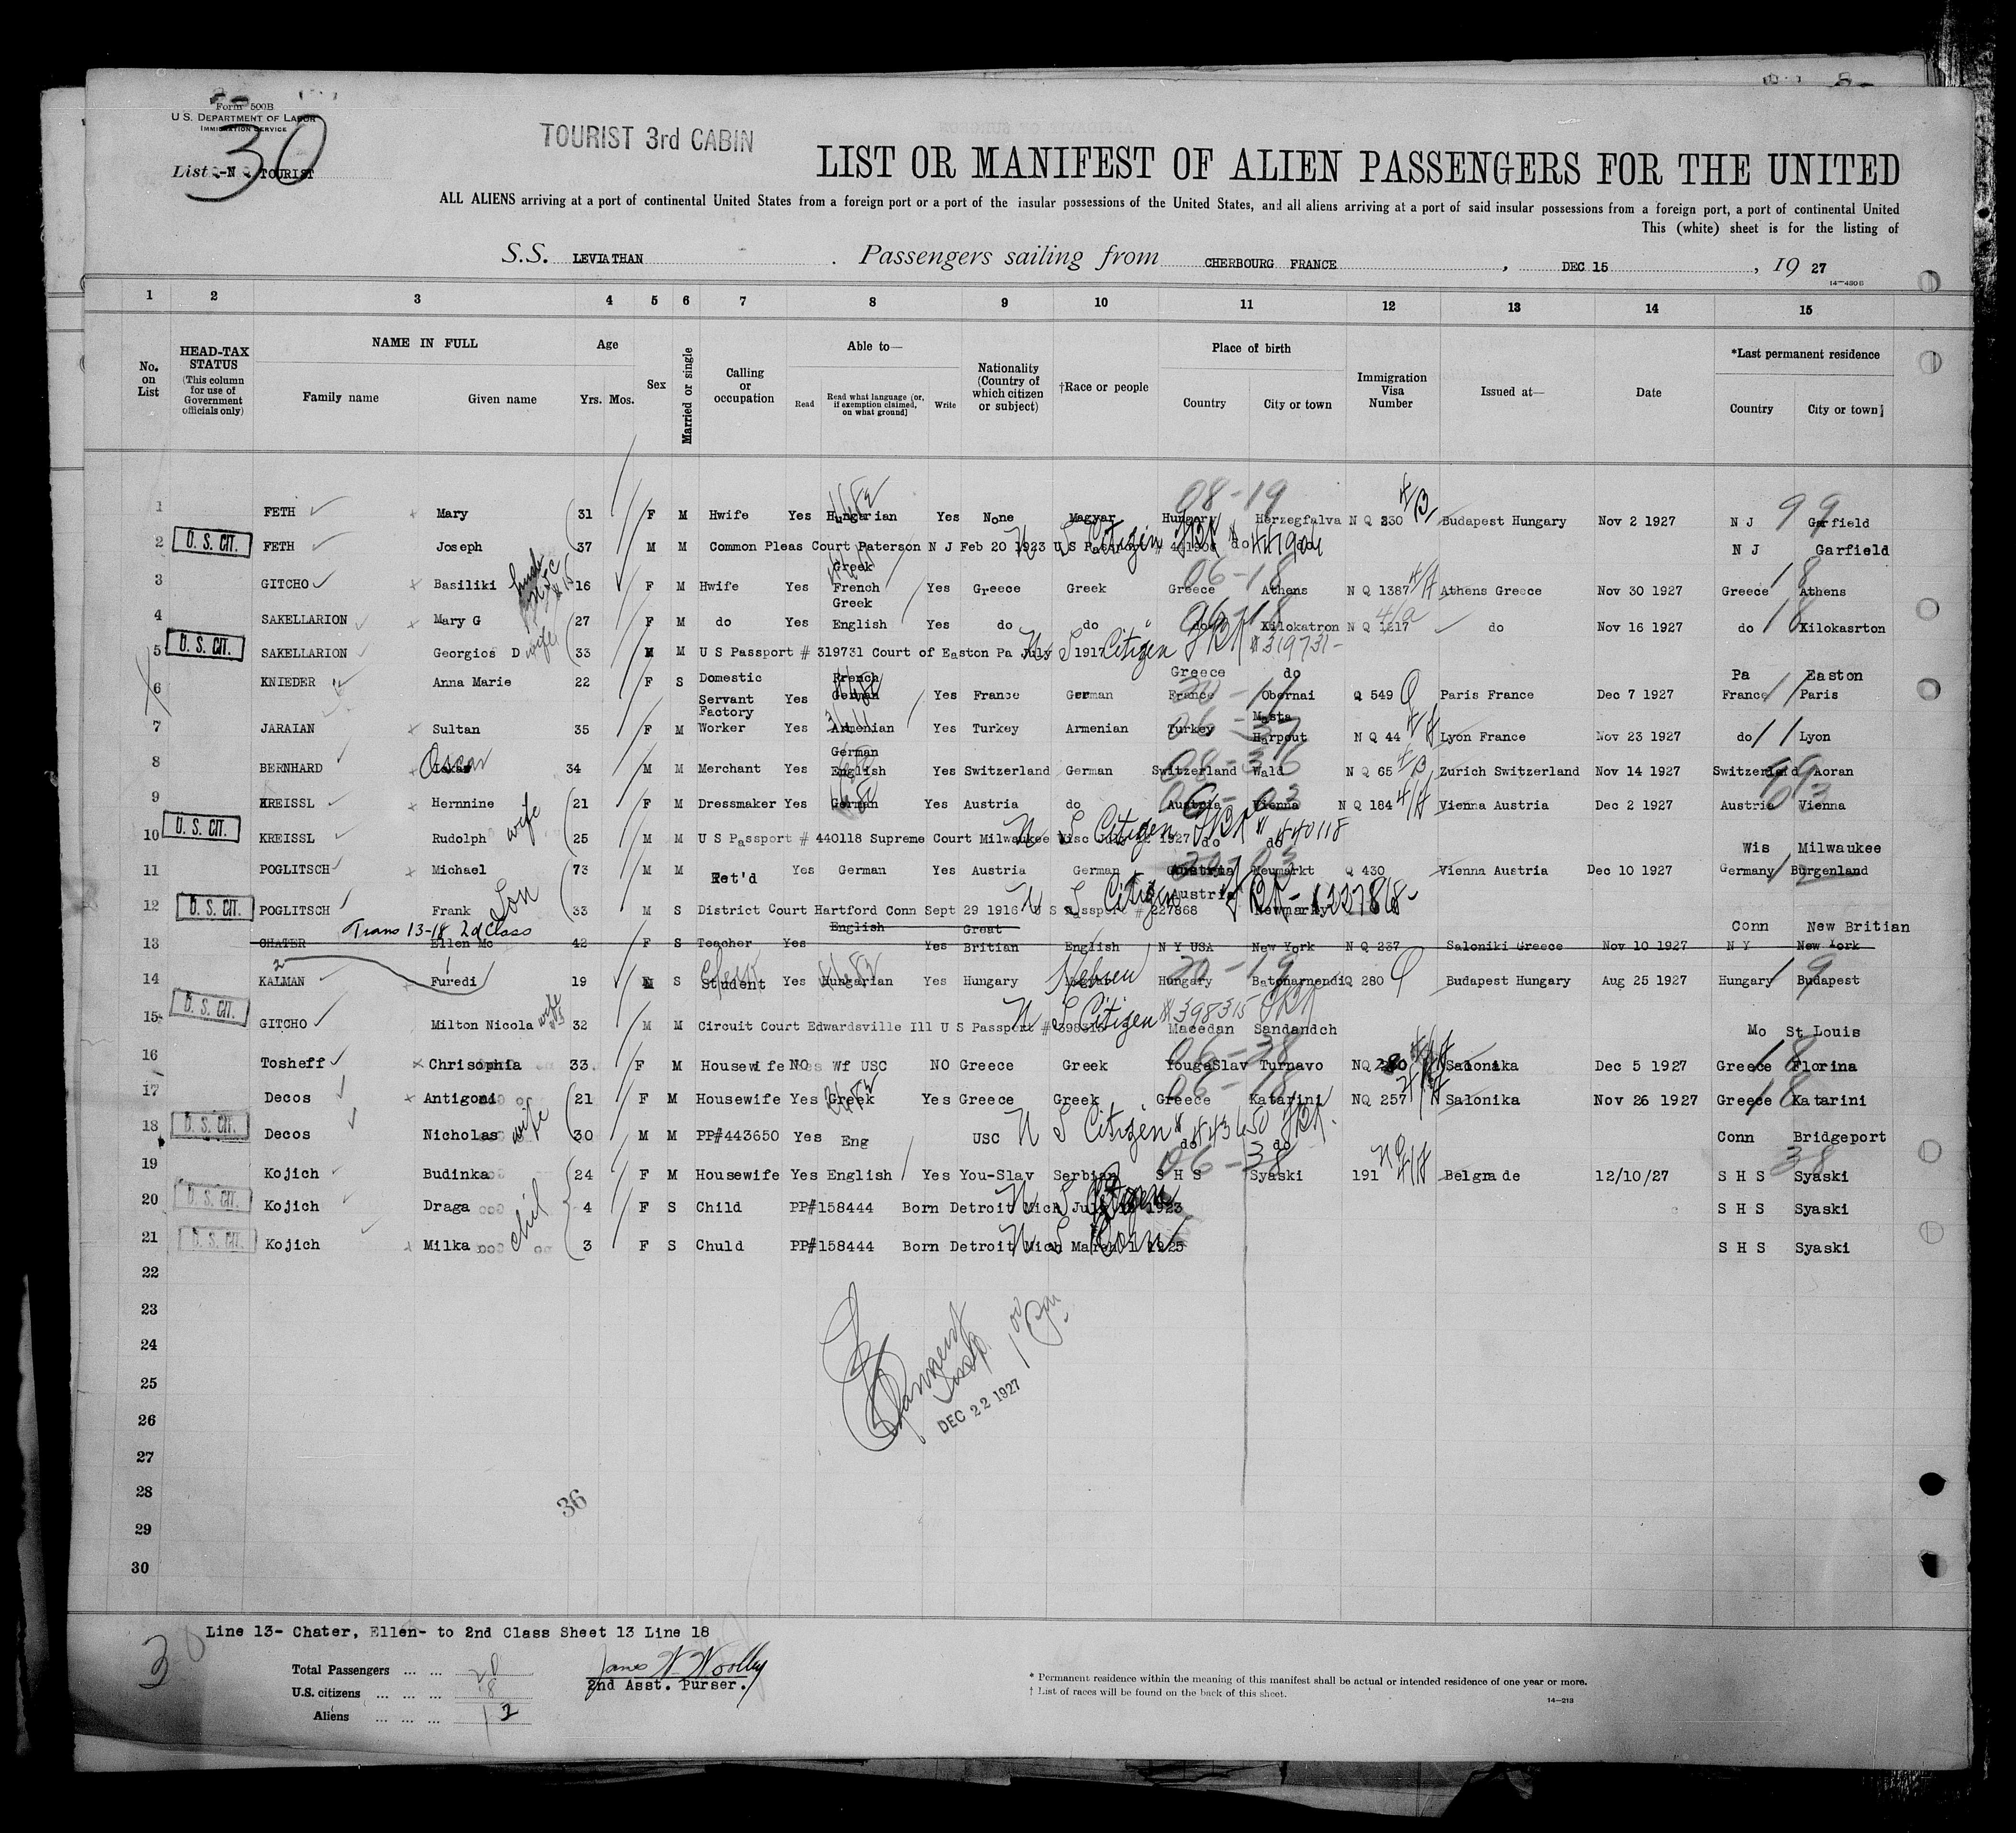 Form 500B
U.S. DEPARTMENT OF LABOR
IMMIGRATION SERVICE
30
List TOURIST
TOURIST 3rd CABIN
LIST OR MANIFEST OF ALIEN PASSENGERS FOR THE UNITED
ALL ALIENS arriving at a port of continental United States from a foreign port or a port of the insular possessions of the United States, and all aliens arriving at a port of said insular possessions from a foreign port, a port of continental United
This (white) sheet is for the listing of
S.S. LEVIATHAN. Passengers sailing from CHERBOURG FRANCE, DEC 15, 19 27
14-480B
1 2 3 4 5 6 7 8 9 10 11 12 13 14 15
No. on List HEAD-TAX STATUS (This column for use of Government officials only) NAME IN FULL Family name Given name Age Yrs. Mos. Sex Married or single Calling or occupation Able to— Read Read what language [or, if exemption claimed, on what ground] Write Nationality (Country of which citizen or subject) †Race or people Place of birth Country City or town Immigration Visa Number Issued at— Date *Last permanent residence Country City or town
1 FETH Mary 31 F M Hwife Yes Hungarian Yes None Magyar Hungary Herzegfalva N Q 230 Budapest Hungary Nov 2 1927 N J Garfield 08-19 99
2 U.S. CIT. FETH Joseph 37 M M Common Pleas Court Paterson N J Feb 20 1923 U S Citizen do N J Garfield
3 GITCHO Basiliki 16 F M Hwife Yes Greek French Yes Greece Greek Greece Athens N Q 1387 Athens Greece Nov 30 1927 Greece Athens 06-18 18
4 SAKELLARION Mary G 27 F M do Yes Greek English Yes do do do Kilokatron N Q 1217 do Nov 16 1927 do Kilokasrton 06-18 18
5 U.S. CIT. SAKELLARION Georgios D wife 33 M M U S Passport # 319731 Court of Easton Pa July 1917 U S Citizen #319731- Greece do Pa Easton
6 KNIEDER Anna Marie 22 F S Domestic Servant Yes French German Yes France German France Obernai Q 549 Paris France Dec 7 1927 France Paris
7 JARAIAN Sultan 35 F M Factory Worker Yes Armenian Yes Turkey Armenian Turkey Masta Harpout N Q 44 Lyon France Nov 23 1927 do Lyon
8 BERNHARD Oscar 34 M M Merchant Yes German English Yes Switzerland German Switzerland Wald N Q 65 Zurich Switzerland Nov 14 1927 Switzerland Aoran
9 KREISSL Hernnine 21 F M Dressmaker Yes German Yes Austria do Austria Vienna N Q 184 Vienna Austria Dec 2 1927 Austria Vienna
10 U.S. CIT. KREISSL Rudolph wife 25 M M U S Passport # 440118 Supreme Court Milwaukee Wisc July 1927 U S Citizen # 440118 do do Wis Milwaukee
11 POGLITSCH Michael 73 M M Ret'd Yes German Yes Austria German Austria Neumarkt Q 430 Vienna Austria Dec 10 1927 Germany Burgenland
12 U.S. CIT. POGLITSCH Frank Son 33 M S District Court Hartford Conn Sept 29 1916 U S Passport # 227868 U S Citizen Austria Newmarky Conn New Britian
Trans 13-18 2d Class
13 CHATER Ellen Mc 42 F S Teacher Yes English Yes Great Britian English N Y USA New York N Q 237 Saloniki Greece Nov 10 1927 N Y New York
14 KALMAN Furedi 19 M S Student Yes Hungarian Yes Hungary Hebrew Hungary Batonarnendi Q 280 Budapest Hungary Aug 25 1927 Hungary Budapest
15 U.S. CIT. GITCHO Milton Nicola wife 32 M M Circuit Court Edwardsville Ill U S Passport # 398315 U S Citizen # 398315 Macedan Sandandch Mo St Louis
16 Tosheff Chrisophia 33 F M Housewife NO Wf USC NO Greece Greek YougaSlav Turnavo NQ 280 Salonika Dec 5 1927 Greece Florina 06-38 18
17 Decos Antigoni 21 F M Housewife Yes Greek Yes Greece Greek Greece Katarini NQ 257 Salonika Nov 26 1927 Greece Katarini 06-18 18
18 U.S. CIT. Decos Nicholas wife 30 M M PP#443650 Yes Eng USC U S Citizen # 443650 do do Conn Bridgeport
19 Kojich Budinka 24 F M Housewife Yes English Yes You-Slav Serbian S H S Syaski 191 Belgrade 12/10/27 S H S Syaski 06-38 38
20 U.S. CIT. Kojich Draga 4 F S Child PP#158444 Born Detroit Mich July 1923 U S S H S Syaski
21 U.S. CIT. Kojich Milka 3 F S Chuld PP#158444 Born Detroit Mich March 1 1925 U S Born S H S Syaski
22
23
24
25
26
27
28
29
30
DEC 22 1927
36
Line 13- Chater, Ellen- to 2nd Class Sheet 13 Line 18
30
Total Passengers ... ... 20
U.S. citizens ... ... ... 8
Aliens ... ... ... 12
James W. Woolley
2nd Asst. Purser.
* Permanent residence within the meaning of this manifest shall be actual or intended residence of one year or more.
† List of races will be found on the back of this sheet.
14-213